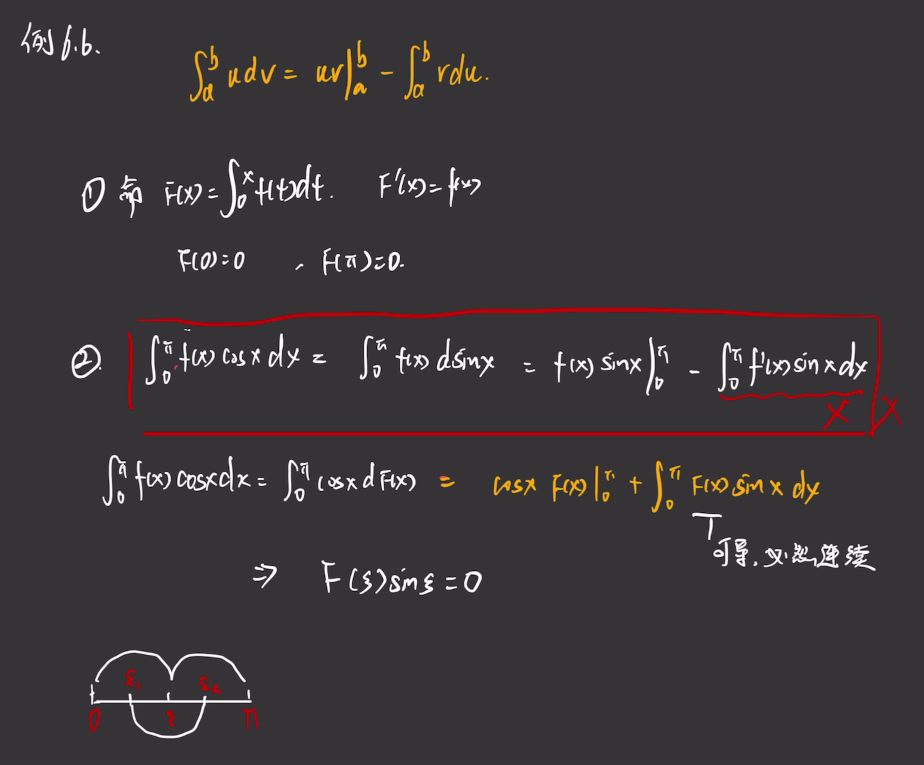 例6.6.
∫_a^b u dv = uv|_a^b - ∫_a^b v du.
① 命 F(x) = ∫_0^x f(t)dt. F'(x) = f(x)
F(0)=0 , F(π)=0.
② ∫_0^π f(x) cosx dx = ∫_0^π f(x) dsinx = f(x) sinx|_0^π - ∫_0^π f'(x) sinx dx
X X
∫_0^π f(x) cosx dx = ∫_0^π cosx dF(x) = cosx F(x)|_0^π + ∫_0^π F(x) sinx dx
可导,必然连续
⇒ F(ξ)sinξ=0
ξ₁ ξ₂
0 ξ π